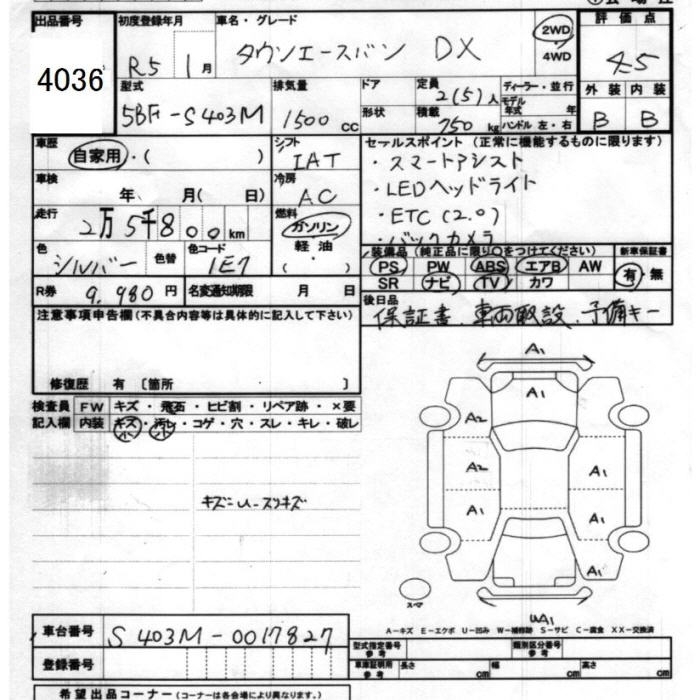 出品番号 初度登録年月 車名・グレード 2WD 評価点
4036 R5 1月 タウンエースバン DX 4WD 4.5
型式 排気量 ドア 定員 ディーラー・並行 外装 内装
5BF-S403M 1500cc 2(5)人 モデル年式 年 B B
形状 積載 750kg ハンドル 左・右
車歴 自家用・( ) シフト IAT セールスポイント(正常に機能するものに限ります)
・スマートアシスト
車検 年 月( 日) 冷房 AC ・LEDヘッドライト
走行 2万5千800km 燃料 ガソリン ・ETC(2.0)
軽油・ ・バックカメラ
色 シルバー 色替 色コード 1E7 ( ) 装備品(純正品に限り○をつけてください) 新車保証書
PS PW ABS エアB AW 有・無
R券 9,980円 名変通知期限 月 日 SR ナビ TV カワ
注意事項申告欄(不具合内容等は具体的に記入して下さい) 後日品
保証書、車両取説、予備キー
修復歴 有〔箇所 〕
検査員 FW キズ・飛石・ヒビ割・リペア跡・×要
記入欄 内装 キズ・汚レ・コゲ・穴・スレ・キレ・破レ
小 小
キズニU-スリキズ
A1
A1
A2
A2 A1
A1 A1
A1
スペア
UA1
A-キズ E-エクボ U-凹み W-補修跡 S-サビ C-腐食 XX-交換済
車台番号 S403M-0017827
型式指定番号 参考 類別区分番号 参考
登録番号 車庫証明用 参考 長さ cm 幅 cm 高さ cm
希望出品コーナー(コーナーは各会場により異なります。)